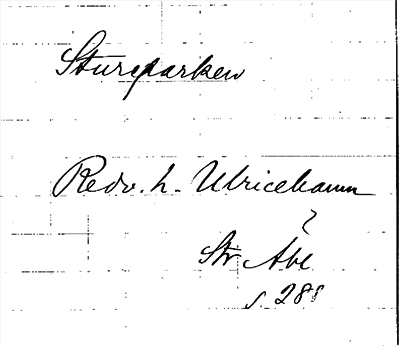 Stureparken
Redv. h. Ulricehamn
?
Str Åbl
s 288